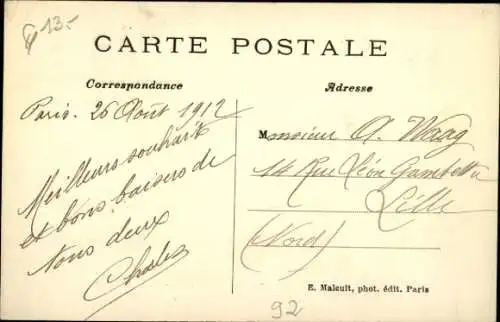 13.-
CARTE POSTALE
Correspondance
Adresse
Paris. 26 Août 1912
Meilleurs souhaits
et bons baisers de
tous deux
Charles
Monsieur A. Waag
14 Rue Léon Gambetta
Lille
(Nord)
E. Malcuit, phot. édit. Paris
92